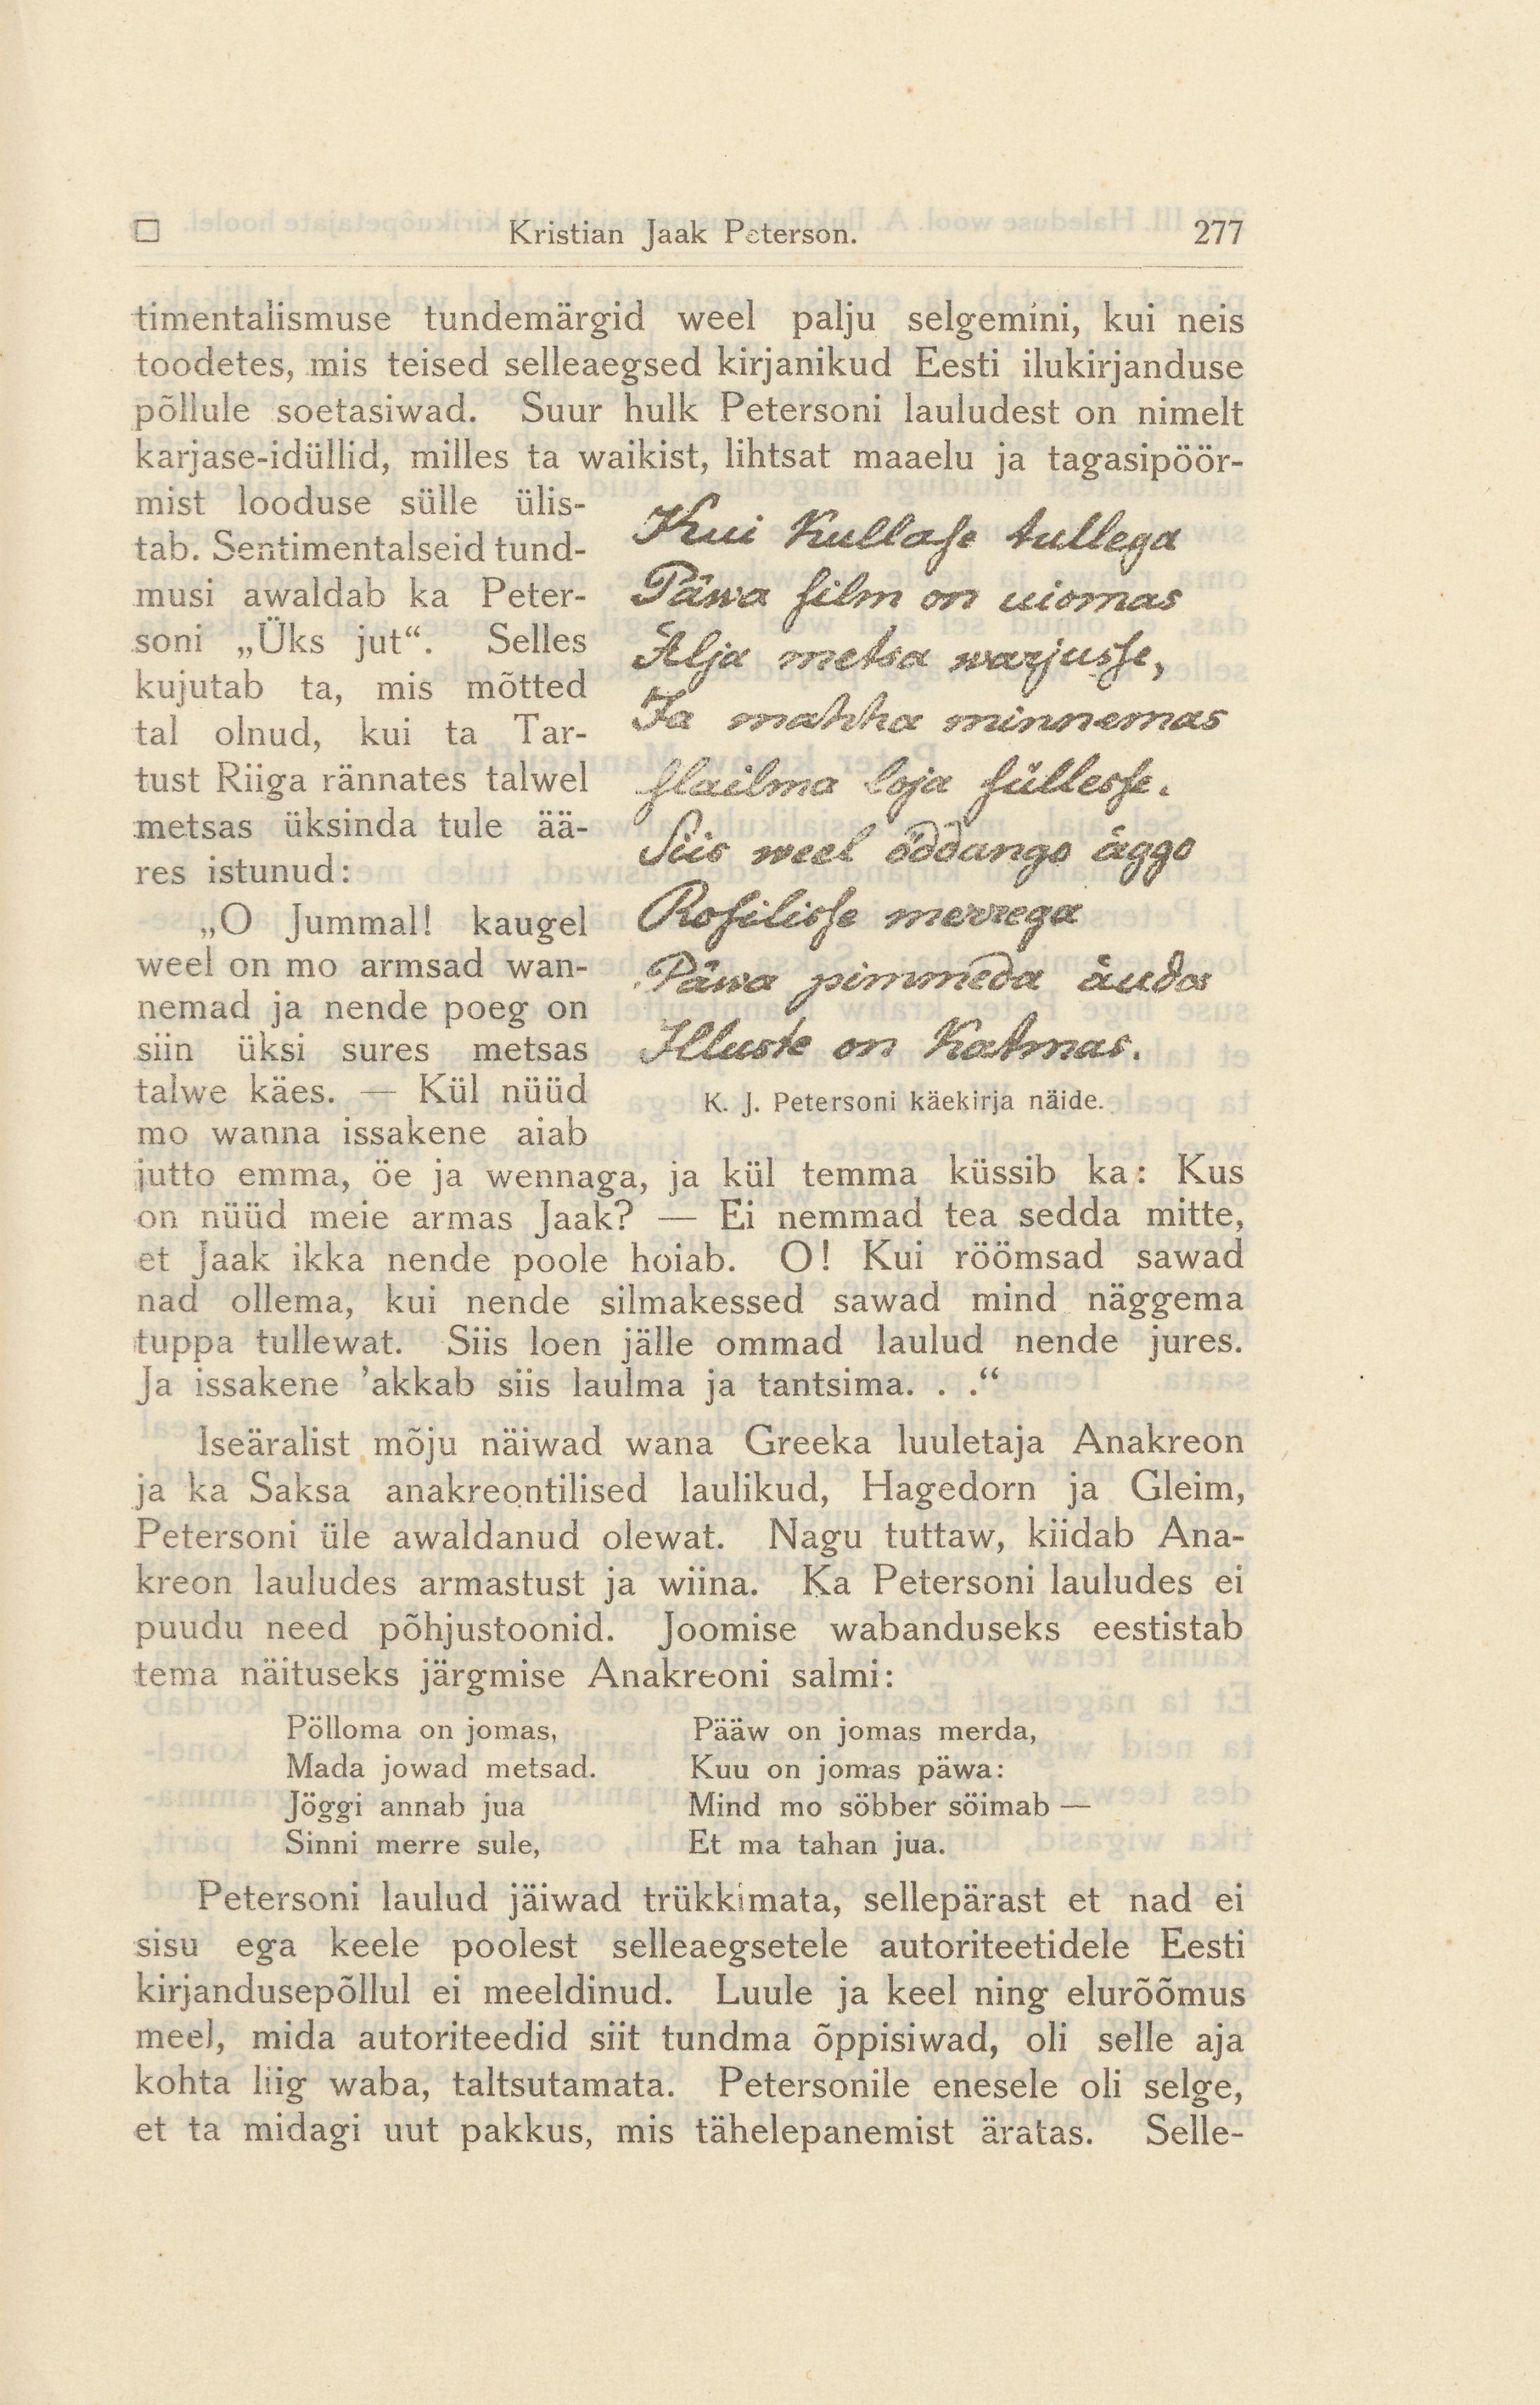 Kristian Jaak Peterson. 277
timentalismuse tundemärgid weel palju selgemini, kui neis
toodetes, mis teised selleaegsed kirjanikud Eesti ilukirjanduse
põllule soetasiwad. Suur hulk Petersoni lauludest on nimelt
karjase-idüllid, milles ta waikist, lihtsat maaelu ja tagasipöör-
mist looduse sülle ülis-
tab. Sentimentalseid tund-
musi awaldab ka Peter-
soni „Üks jut“. Selles
kujutab ta, mis mõtted
tal olnud, kui ta Tar-
tust Riiga rännates talwel
metsas üksinda tule ää-
res istunud:
„O Jummal! kaugel
weel on mo armsad wan-
nemad ja nende poeg on
siin üksi sures metsas
talwe käes. — Kül nüüd
mo wanna issakene aiab
Kui Kullaſe tullega
Päwa ſilm on uiomas
Älja metsa warjusſe,
Ja mahha minnemas
ſlailma loja ſüllesſe.
Siis weel öddango äggo
Roſilisſe merrega
Päwa pimmeda äudas
Illuste on Katmas.
K. J. Petersoni käekirja näide.
jutto emma, öe ja wennaga, ja kül temma küssib ka: Kus
on nüüd meie armas Jaak? — Ei nemmad tea sedda mitte,
et Jaak ikka nende poole hoiab. O! Kui röömsad sawad
nad ollema, kui nende silmakessed sawad mind näggema
tuppa tullewat. Siis loen jälle ommad laulud nende jures.
Ja issakene ’akkab siis laulma ja tantsima. . .“
Iseäralist mõju näiwad wana Greeka luuletaja Anakreon
ja ka Saksa anakreontilised laulikud, Hagedorn ja Gleim,
Petersoni üle awaldanud olewat. Nagu tuttaw, kiidab Ana-
kreon lauludes armastust ja wiina. Ka Petersoni lauludes ei
puudu need põhjustoonid. Joomise wabanduseks eestistab
tema näituseks järgmise Anakreoni salmi:
Pölloma on jomas,
Mada jowad metsad.
Jöggi annab jua
Sinni merre sule,
Pääw on jomas merda,
Kuu on jomas päwa:
Mind mo söbber söimab —
Et ma tahan jua.
Petersoni laulud jäiwad trükkimata, sellepärast et nad ei
sisu ega keele poolest selleaegsetele autoriteetidele Eesti
kirjandusepõllul ei meeldinud. Luule ja keel ning elurõõmus
meel, mida autoriteedid siit tundma õppisiwad, oli selle aja
kohta liig waba, taltsutamata. Petersonile enesele oli selge,
et ta midagi uut pakkus, mis tähelepanemist äratas. Selle-